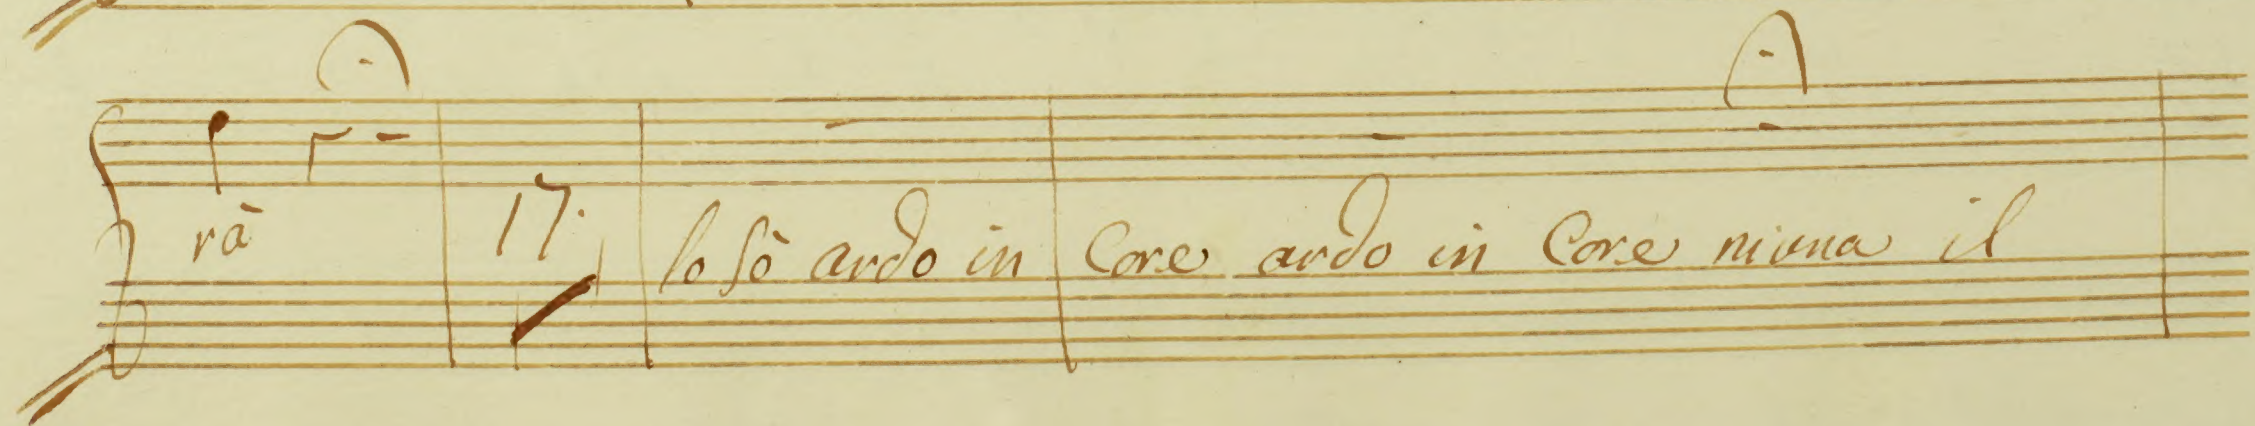 rà 17. lo sò ardo in Core ardo in Core niuna il